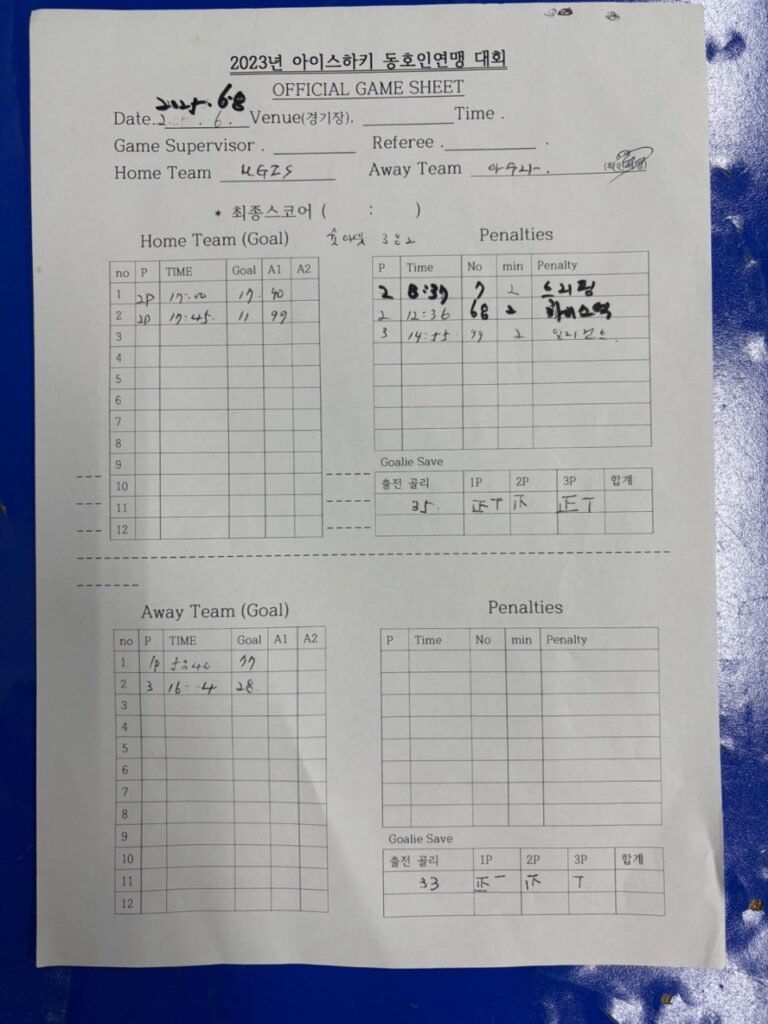 2023년 아이스하키 동호인연맹 대회
OFFICIAL GAME SHEET
2025. 6.8
Date. Venue(경기장). Time .
Game Supervisor . Referee .
Home Team Away Team (확인서명)
* 최종스코어 ( : )
Home Team (Goal) 3 2 Penalties
no P TIME Goal A1 A2
1 2P 17: 17 40
2 2P 17:45 11 99
3
4
5
6
7
8
9
10
11
12
P Time No min Penalty
2 8:37 7 2 트리핑
2 12:36 68 2 하이스틱
3 14:55 99 2
Goalie Save
출전 골리 1P 2P 3P 합계
35. 正丅 正 正丅
Away Team (Goal) Penalties
no P TIME Goal A1 A2
1 1P :40 77
2 3 16 4 28
3
4
5
6
7
8
9
10
11
12
P Time No min Penalty
Goalie Save
출전 골리 1P 2P 3P 합계
33 正一 正 丅